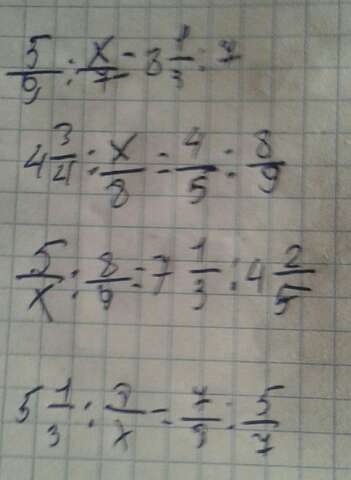 5/9 : x/7 = 3 1/3 : 7
4 3/4 : x/8 = 4/5 : 8/9
5/x : 8/9 = 7 1/3 : 4 2/5
5 1/3 : 3/x = 7/9 : 5/7